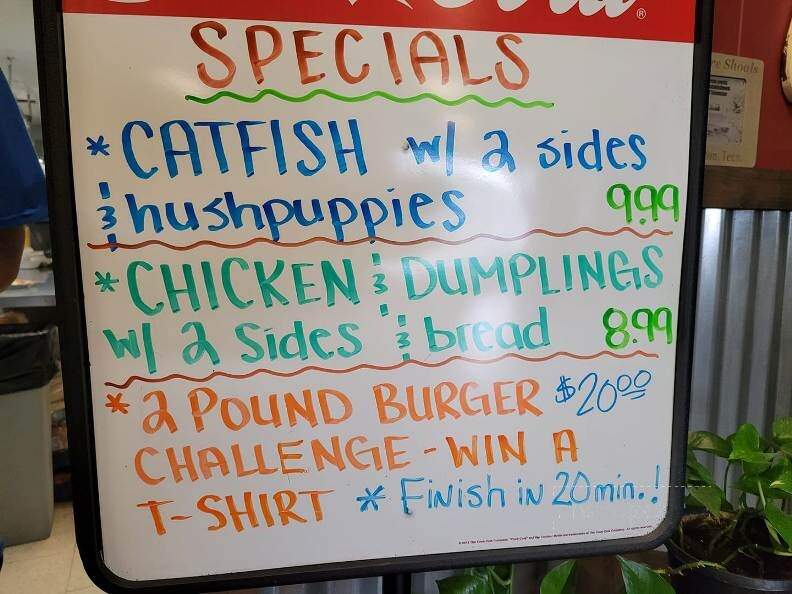 SPECIALS
* CATFISH w/ 2 sides
& hushpuppies 9.99
* CHICKEN & DUMPLINGS
w/ 2 Sides & bread 8.99
* 2 POUND BURGER $20.00
CHALLENGE - WIN A
T-SHIRT * Finish in 20 min.!